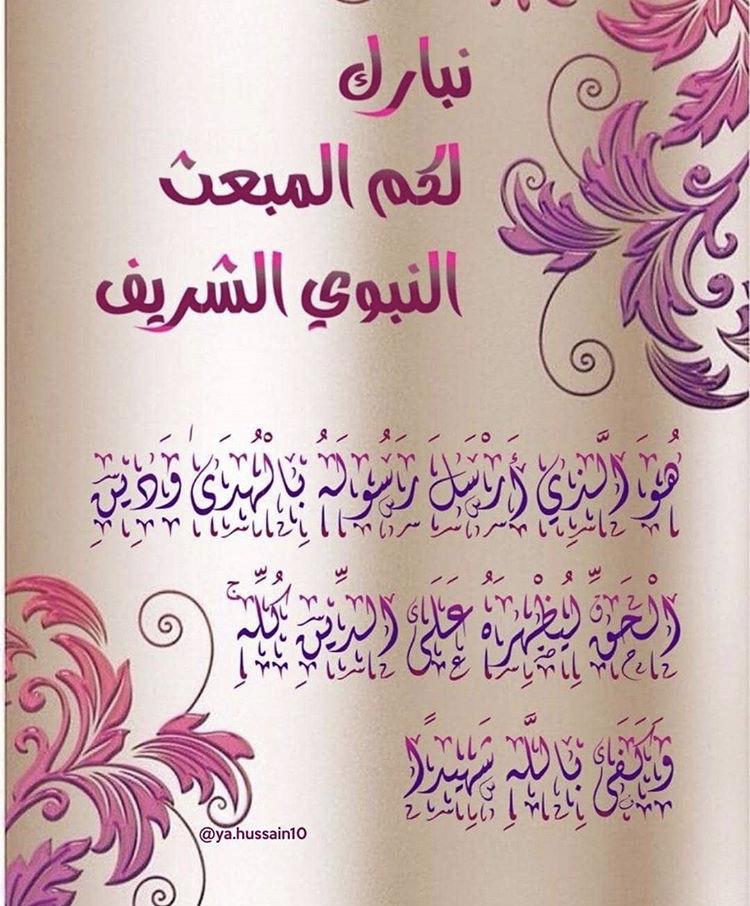 نبارك
لكم المبعث
النبوي الشريف
هُوَ الَّذِي أَرْسَلَ رَسُولَهُ بِالْهُدَىٰ وَدِينِ
الْحَقِّ لِيُظْهِرَهُ عَلَى الدِّينِ كُلِّهِ ۚ
وَكَفَىٰ بِاللَّهِ شَهِيدًا
@ya.hussain10